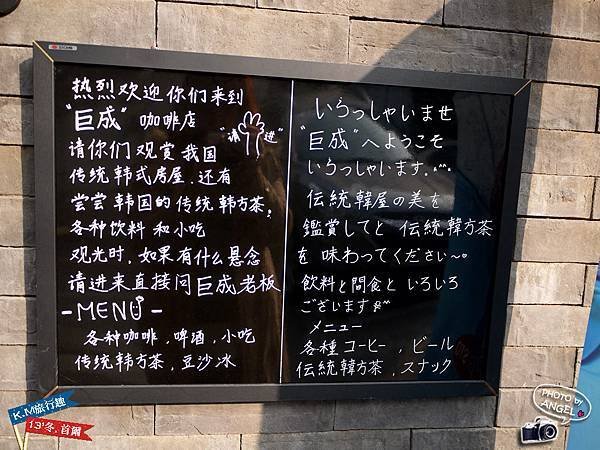 热烈欢迎你们来到
"巨成" 咖啡店
"请进"
请你们观赏我国
传统韩式房屋.还有
尝尝韩国的传统韩方茶,
各种饮料和小吃
观光时,如果有什么悬念
请进来直接问巨成老板
-MENU-
各种咖啡,啤酒,小吃
传统韩方茶,豆沙冰
いらっしゃいませ
"巨成"へようこそ
いらっしゃいます.^^
伝統韓屋の美を
鑑賞してと 伝統韓方茶
を 味わってください~。
飲料と間食と いろいろ
ございます^^
メニュー
各種コーヒー,ビール
伝統韓方茶.スナック
K.M旅行趣
13'冬.首爾
PHOTO by
ANGEL